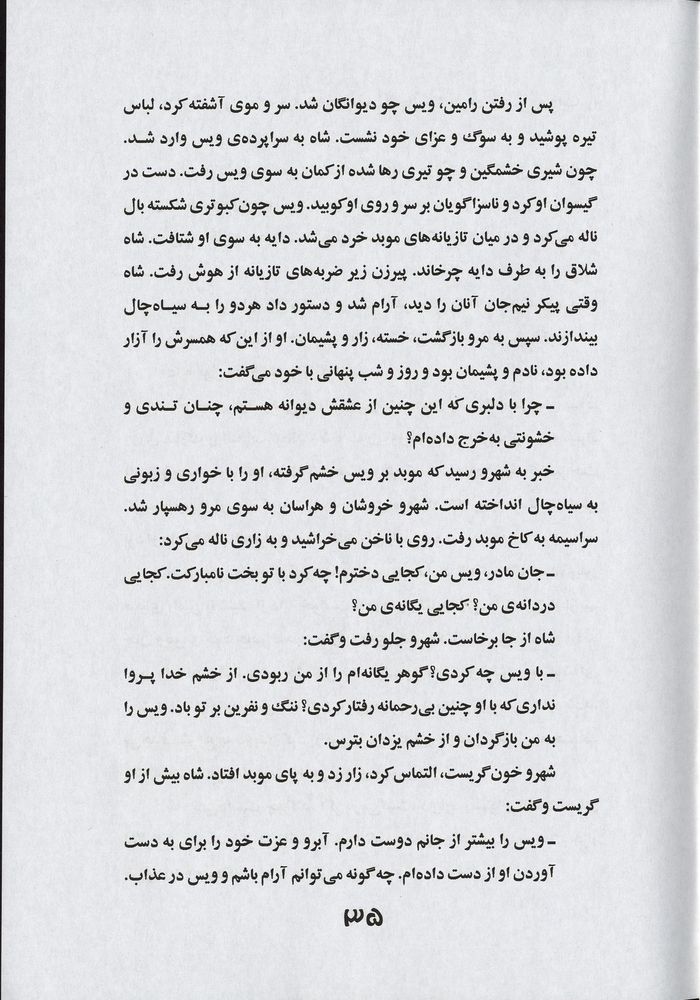 پس از رفتن رامین، ویس چو دیوانگان شد. سر و موی آشفته کرد، لباس
تیره پوشید و به سوگ و عزای خود نشست. شاه به سراپرده‌ی ویس وارد شد.
چون شیری خشمگین و چو تیری رها شده از کمان به سوی ویس رفت. دست در
گیسوان او کرد و ناسزاگویان بر سر و روی او کوبید. ویس چون کبوتری شکسته بال
ناله می‌کرد و در میان تازیانه‌های موبد خرد می‌شد. دایه به سوی او شتافت. شاه
شلاق را به طرف دایه چرخاند. پیرزن زیر ضربه‌های تازیانه از هوش رفت. شاه
وقتی پیکر نیم‌جان آنان را دید، آرام شد و دستور داد هردو را به سیاه‌چال
بیندازند. سپس به مرو بازگشت، خسته، زار و پشیمان. او از این‌که همسرش را آزار
داده بود، نادم و پشیمان بود و روز و شب پنهانی با خود می‌گفت:
ـ چرا با دلبری که این چنین از عشقش دیوانه هستم، چنان تندی و
خشونتی به‌خرج داده‌ام؟
خبر به شهرو رسید که موبد بر ویس خشم گرفته، او را با خواری و زبونی
به سیاه‌چال انداخته است. شهرو خروشان و هراسان به سوی مرو رهسپار شد.
سراسیمه به کاخ موبد رفت. روی با ناخن می‌خراشید و به زاری ناله می‌کرد:
ـ جان مادر، ویس من، کجایی دخترم! چه کرد با تو بخت نامبارکت. کجایی
دردانه‌ی من؟ کجایی یگانه‌ی من؟
شاه از جا برخاست. شهرو جلو رفت و گفت:
ـ با ویس چه کردی؟ گوهر یگانه‌ام را از من ربودی. از خشم خدا پروا
نداری که با او چنین بی‌رحمانه رفتار کردی؟ ننگ و نفرین بر تو باد. ویس را
به من بازگردان و از خشم یزدان بترس.
شهرو خون گریست، التماس کرد، زار زد و به پای موبد افتاد. شاه بیش از او
گریست و گفت:
ـ ویس را بیشتر از جانم دوست دارم. آبرو و عزت خود را برای به دست
آوردن او از دست داده‌ام. چه‌گونه می‌توانم آرام باشم و ویس در عذاب.
۳۵